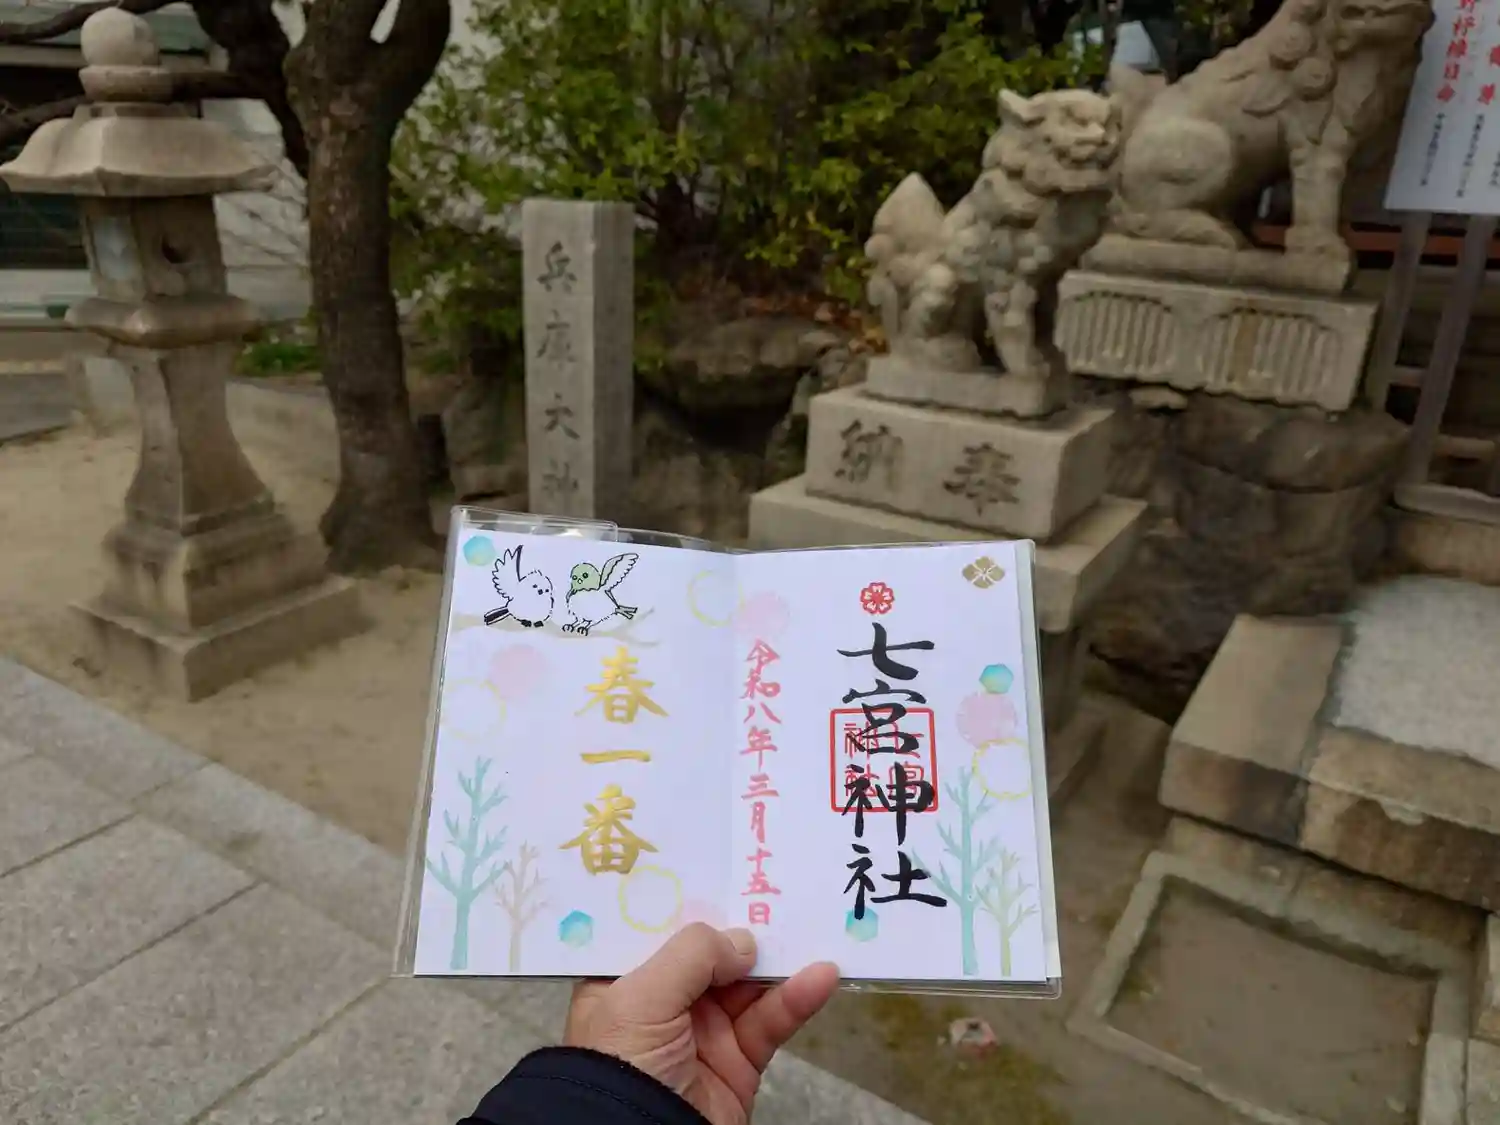 七宮神社
七宮神社
令和八年三月十五日
春一番
兵庫大神
奉納